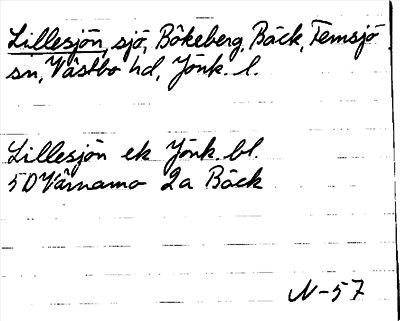 Lillesjön, sjö, Bökeberg, Bäck, Femsjö
sn, Västbo hd, Jönk. l.
Lillesjön ek Jönk. bl.
5D Värnamo 2a Bäck
N-57